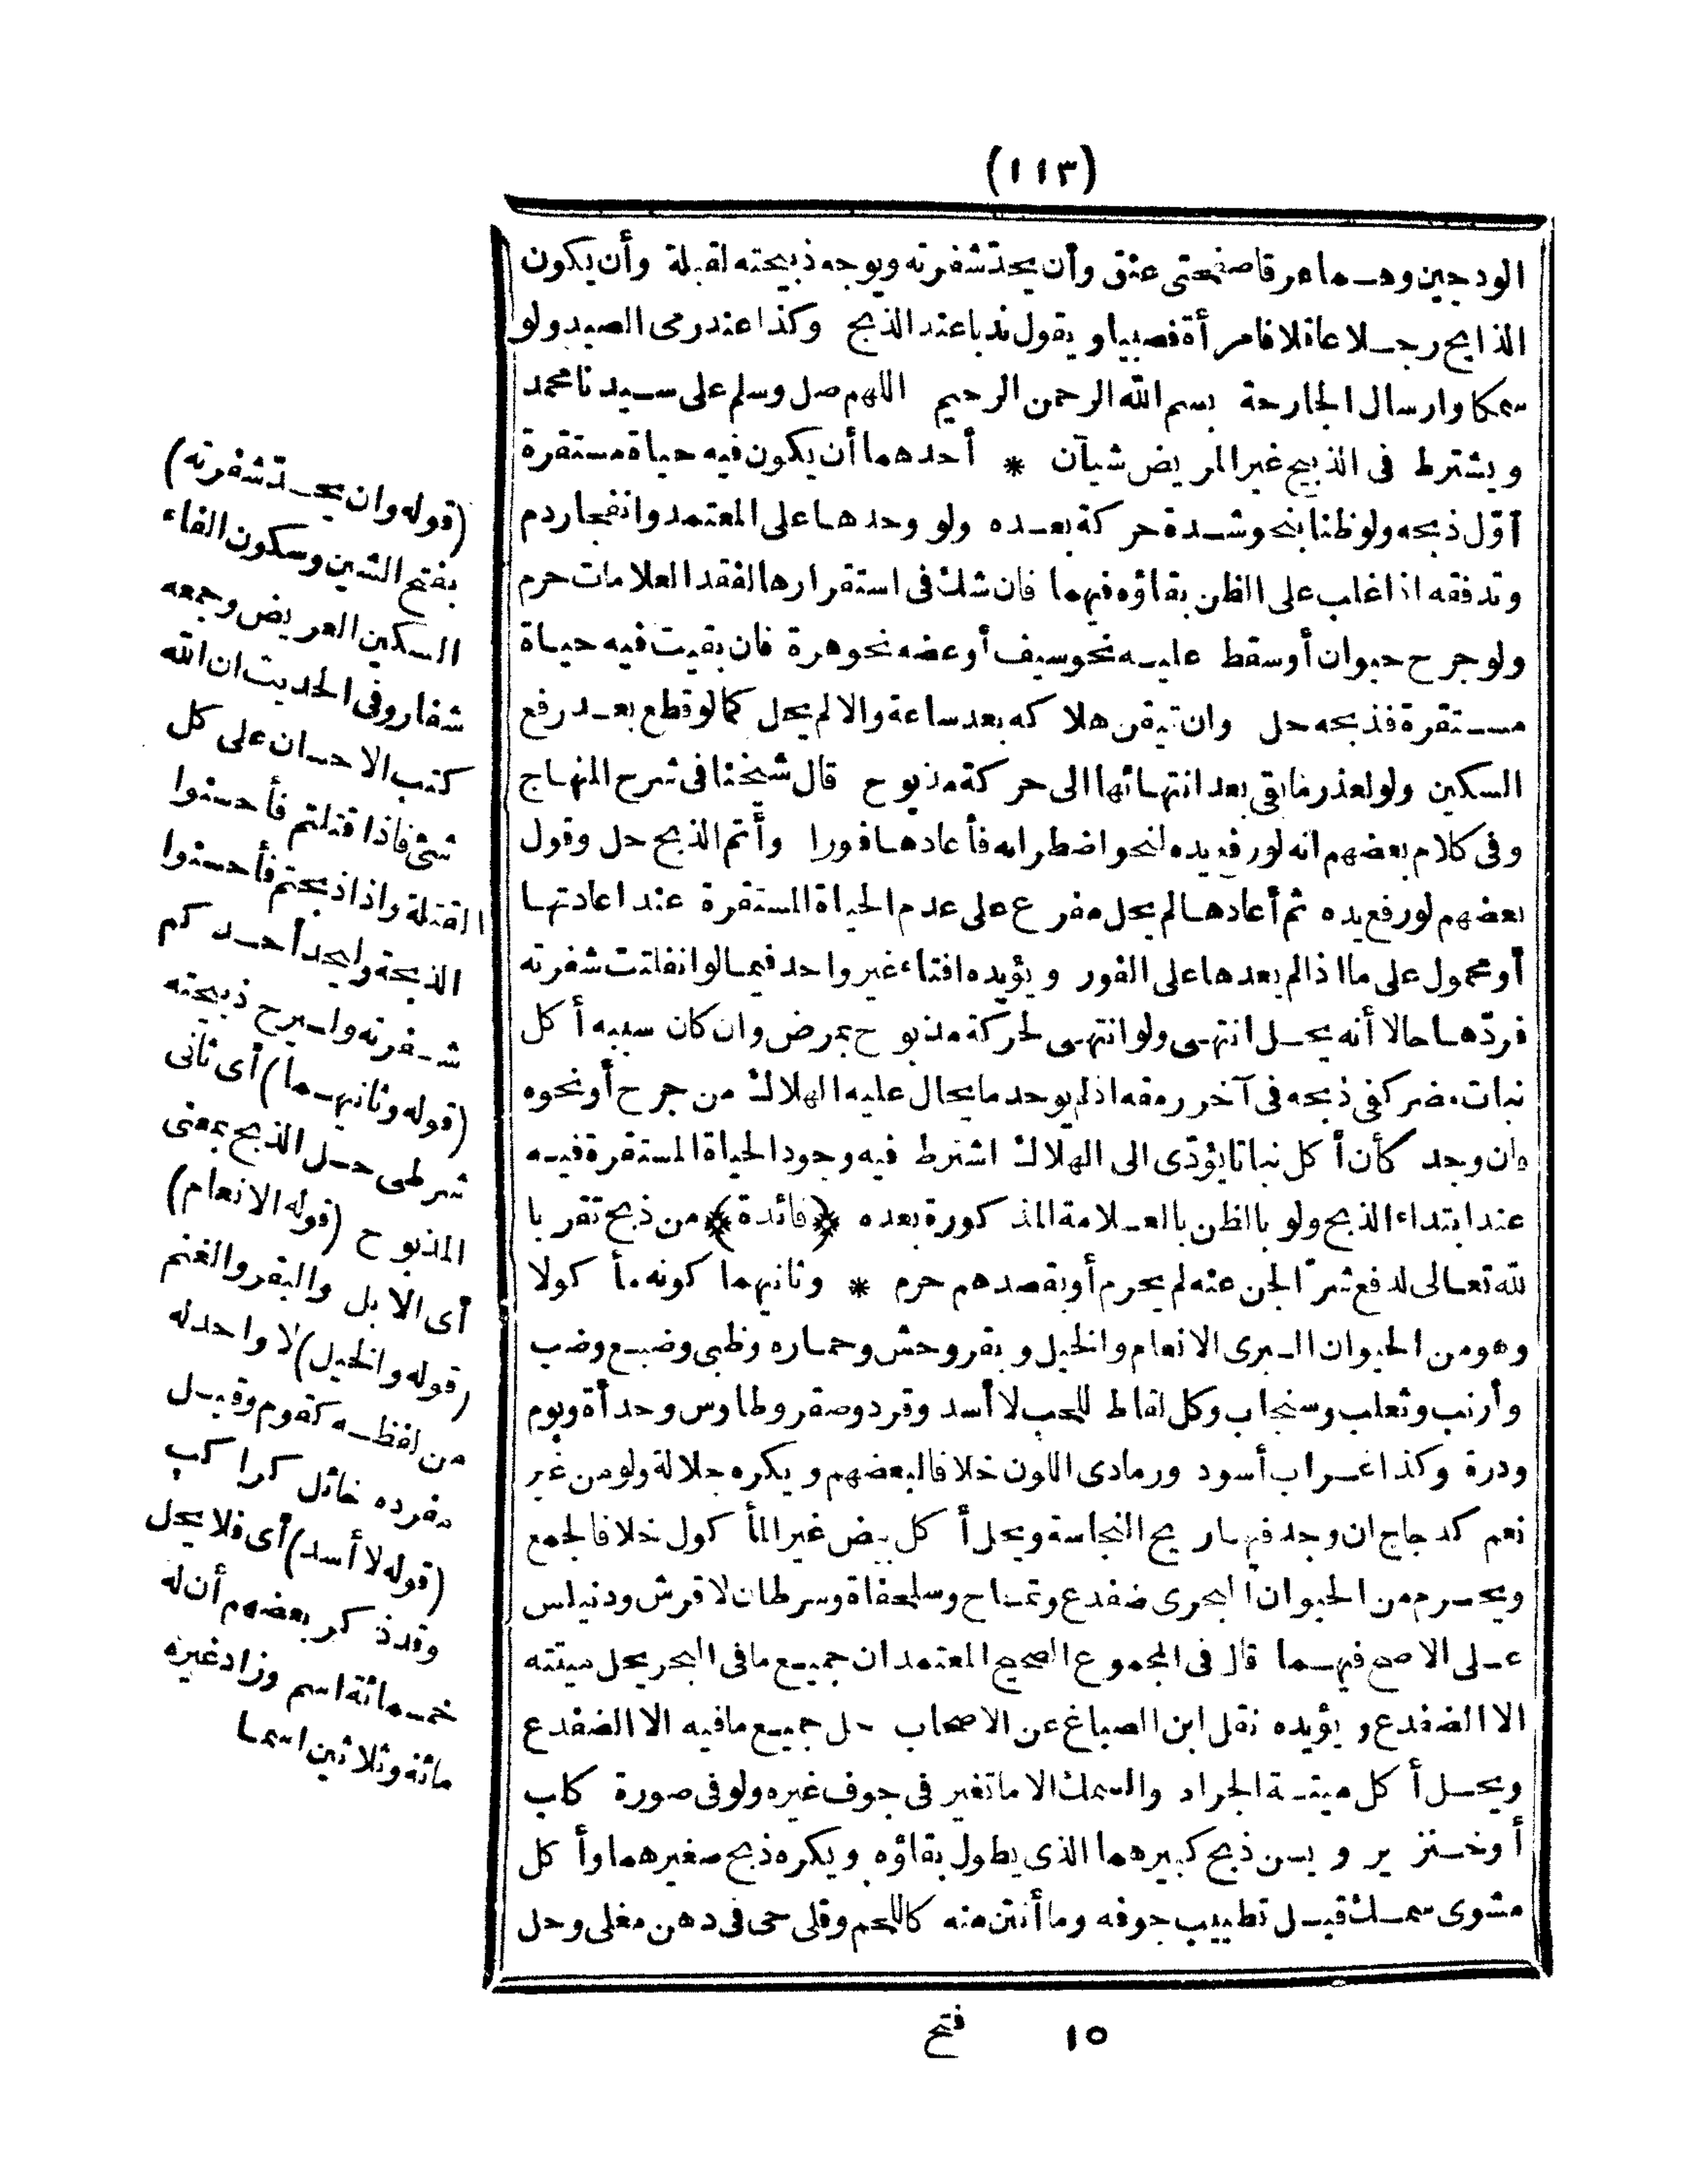 (١١٣)
الودجين وهما عرقا صفحتى عنق وأن يحد شفرته ويوجه ذبيحته لقبلة وأن يكون
الذابح رجلا عاقلا فامرأة فصبيا ويقول ندبا عند الذبح وكذا عند رمى الصيد ولو
سمكا وارسال الجارحة بسم الله الرحمن الرحيم اللهم صل وسلم على سيدنا محمد
ويشترط فى الذبيح غير المريض شيآن * أحدهما أن يكون فيه حياة مستقرة
أوّل ذبحه ولو ظنا بنحو شدة حركة بعده ولو وحدها على المعتمد وانفجار دم
وتدفقه اذا غلب على الظن بقاؤه فيهما فان شك فى استقرارها لفقد العلامات حرم
ولو جرح حيوان أو سقط عليه نحو سيف أو عضه نحو هرة فان بقيت فيه حياة
مستقرة فذبحه حل وان تيقن هلاكه بعد ساعة والا لم يحل كما لو قطع بعد رفع
السكين ولو لعذر ما بقى بعد انتهائها الى حركة مذبوح قال شيخنا فى شرح المنهاج
وفى كلام بعضهم انه لو رفع يده لنحو اضطرابه فأعادها فورا وأتم الذبح حل وقول
بعضهم لو رفع يده ثم أعادها لم يحل مفرع على عدم الحياة المستقرة عند اعادتها
أو محمول على ما اذا لم يعدها على الفور ويؤيده افتاء غير واحد فيما لو انفلتت شفرته
فردّها حالا أنه يحل انتهى ولو انتهى لحركة مذبوح بمرض وان كان سببه أكل
نبات مضر كفى ذبحه فى آخر رمقه اذ لم يوجد ما يحال عليه الهلاك من جرح أو نحوه
وان وجد كأن أكل نباتا يؤدّى الى الهلاك اشترط فيه وجود الحياة المستقرة فيه
عند ابتداء الذبح ولو بالظن بالعلامة المذكورة بعده ﴿فائدة﴾ من ذبح تقربا
لله تعالى لدفع شرّ الجن عنه لم يحرم أو بقصدهم حرم * وثانيهما كونه مأكولا
وهو من الحيوان البرى الانعام والخيل وبقر وحش وحماره وظبى وضبع وضب
وأرنب وثعلب وسنجاب وكل لقاط للحب لا أسد وقرد وصقر وطاوس وحدأة وبوم
ودرة وكذا غراب أسود ورمادى اللون خلافا لبعضهم ويكره جلالة ولو من غير
نعم كدجاج ان وجد فيها ريح النجاسة ويحل أكل بيض غير المأكول خلافا لجمع
ويحرم من الحيوان البحرى ضفدع وتمساح وسلحفاة وسرطان لا قرش ودنيلس
على الاصح فيهما قال فى المجموع الصحيح المعتمد ان جميع ما فى البحر يحل ميتته
الا الضفدع ويؤيده نقل ابن الصباغ عن الاصحاب حل جميع ما فيه الا الضفدع
ويحل أكل ميتة الجراد والسمك الا ما تغير فى جوف غيره ولو فى صورة كلب
أو خنزير ويسن ذبح كبيرهما الذى يطول بقاؤه ويكره ذبح صغيرهما وأكل
مشوى سمك قبل تطييب جوفه وما أنتن منه كاللحم وقلى حى فى دهن مغلى وحل
(قوله وان يحد شفرته)
بفتح الشين وسكون الفاء
السكين العريض وجمعه
شفار وفى الحديث ان الله
كتب الاحسان على كل
شئ فاذا قتلتم فأحسنوا
القتلة واذا ذبحتم فأحسنوا
الذبحة وليحد أحدكم
شفرته وليرح ذبيحته
(قوله وثانيهما) أى ثانى
شرطى حل الذبح بمعنى
المذبوح (قوله الانعام)
أى الابل والبقر والغنم
(قوله والخيل) لا واحد له
من لفظه كقوم وقيل
مفرده خائل كراكب
(قوله لا أسد) أى فلا يحل
وقد ذكر بعضهم أن له
خمسمائة اسم وزاد غيره
مائة وثلاثين اسما
١٥ فتح